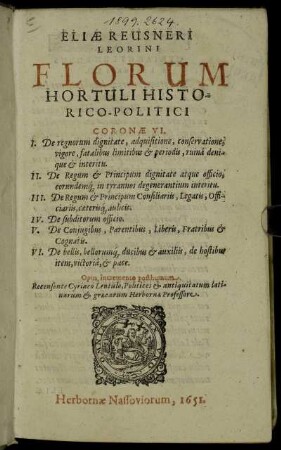 1899. 2624.
ELIÆ REUSNERI
LEORINI
FLORUM
HORTULI HISTO-
RICO-POLITICI
CORONÆ VI.
I. De regnorum dignitate, adquisitione, conservatione,
vigore, fatalibus limitibus & periodis, ruinâ deni-
que & interitu.
II. De Regum & Principum dignitate atque officio,
eorundemq́; in tyrannos degenerantium interitu.
III. De Regum & Principum Consiliariis, Legatis, Offi-
ciariis, ceterisq́; aulicis.
IV. De subditorum officio.
V. De Conjugibus, Parentibus, Liberis, Fratribus &
Cognatis.
VI. De bellis, bellorumq́; ducibus & auxiliis, de hostibus
item, victoriâ, & pace.
Opus
Recensente Cyriaco Lentulo, Politices & antiquitatum lati-
narum & græcarum Herbornæ Professore.
Herbornæ Nassoviorum, 1651.